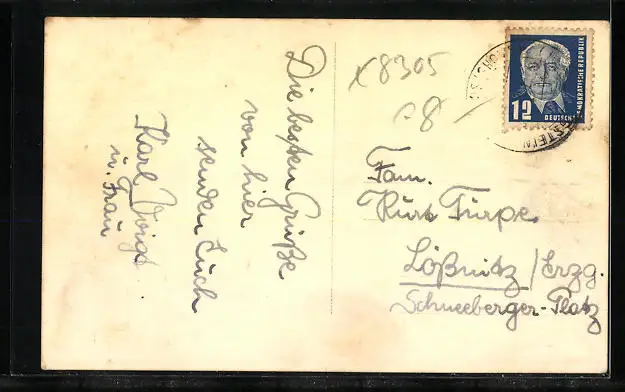 Die besten Grüße
von hier
senden Euch
Karl Voigt
u. Frau
x8305
08
12
DEUTSCHE DEMOKRATISCHE REPUBLIK
Fam.
Kurt Türpe
Lößnitz / Erzg.
Schneeberger-Platz